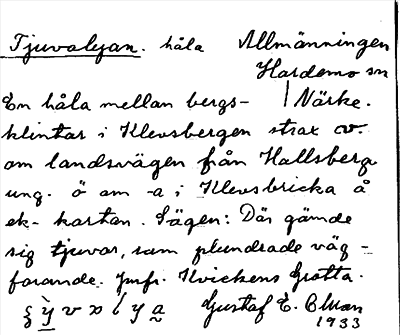 Tjuvalyan. håla Allmänningen
Hardemo sn
En håla mellan bergs- Närke.
klintar i Klevsbergen strax v.
om landsvägen från Hallsberg
ung. ö om -a i Klevsbricka å
ek-kartan. Sägen: Där gömde
sig tjuvar, som plundrade väg-
farande. Jmfr. Kvickens Grotta.
Gustaf E. Elman
1933